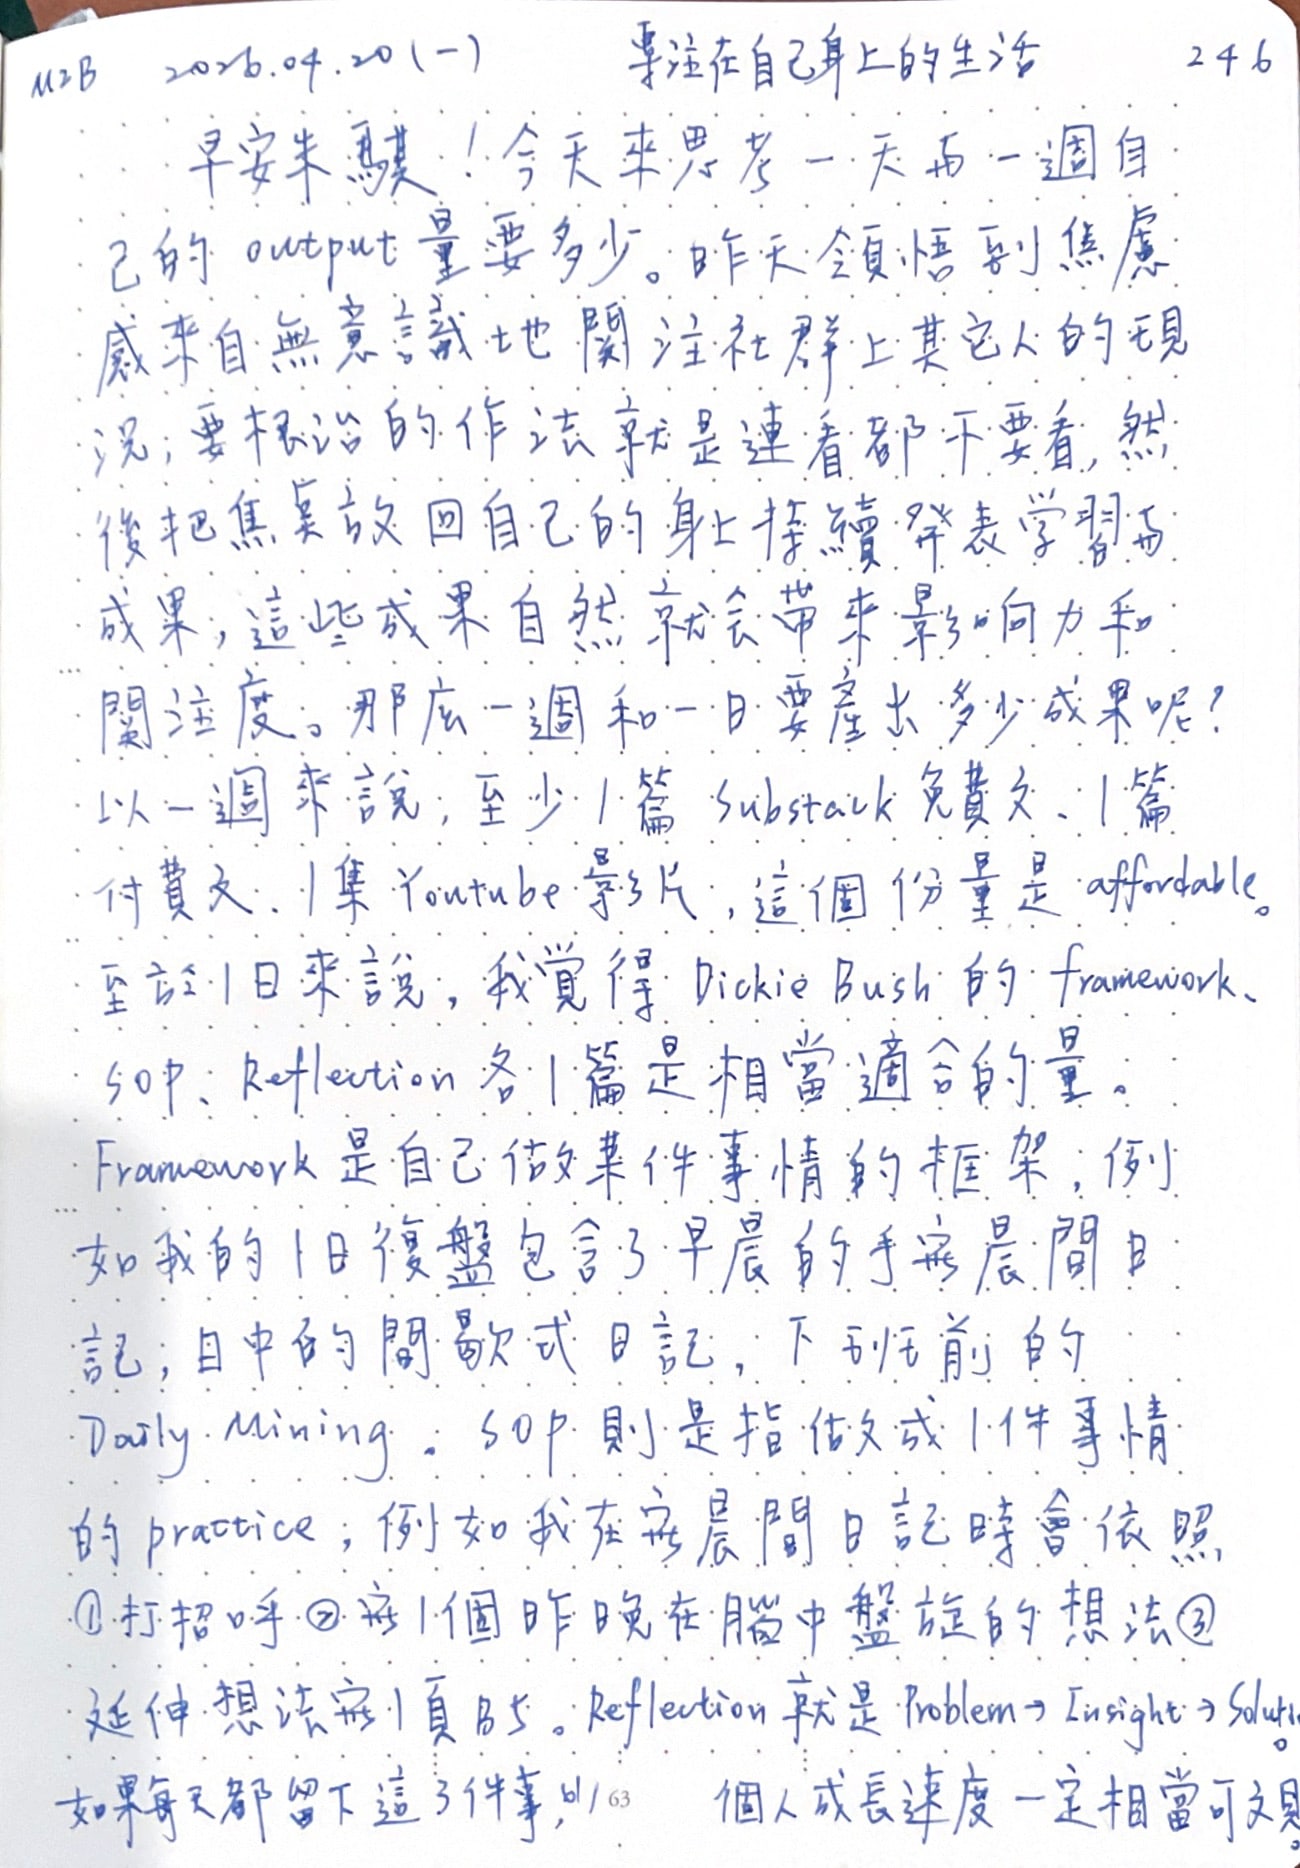 M2B 2026.04.20(一) 專注在自己身上的生活 246
早安朱騏！今天來思考一天与一週自
己的 output 量要多少。昨天領悟到焦慮
感來自無意識地關注社群上其它人的現
況，要根治的作法就是連看都不要看，然
後把焦點放回自己的身上持續発表学習与
成果，這些成果自然就会帶來影响力和
關注度。那広一週和一日要產出多少成果呢？
以一週來說，至少1篇 Substack 免費文、1篇
付費文、1集 Youtube 影片，這個份量是 affordable。
至於1日來說，我覚得 Dickie Bush 的 framework、
SOP、Reflection 各1篇是相當適合的量。
Framework 是自己做某件事情的框架，例
如我的1日復盤包含了早晨的手寫晨間日
記，日中的間歇式日記，下班前的
Daily Mining。SOP 則是指做成1件事情
的 practice，例如我在寫晨間日記時會依照
①打招呼②寫1個昨晚在腦中盤旋的想法③
延伸想法寫1頁B5。Reflection 就是 Problem→Insight→Solution。
如果每天都留下這3件事，別 63 個人成長速度一定相當可观。